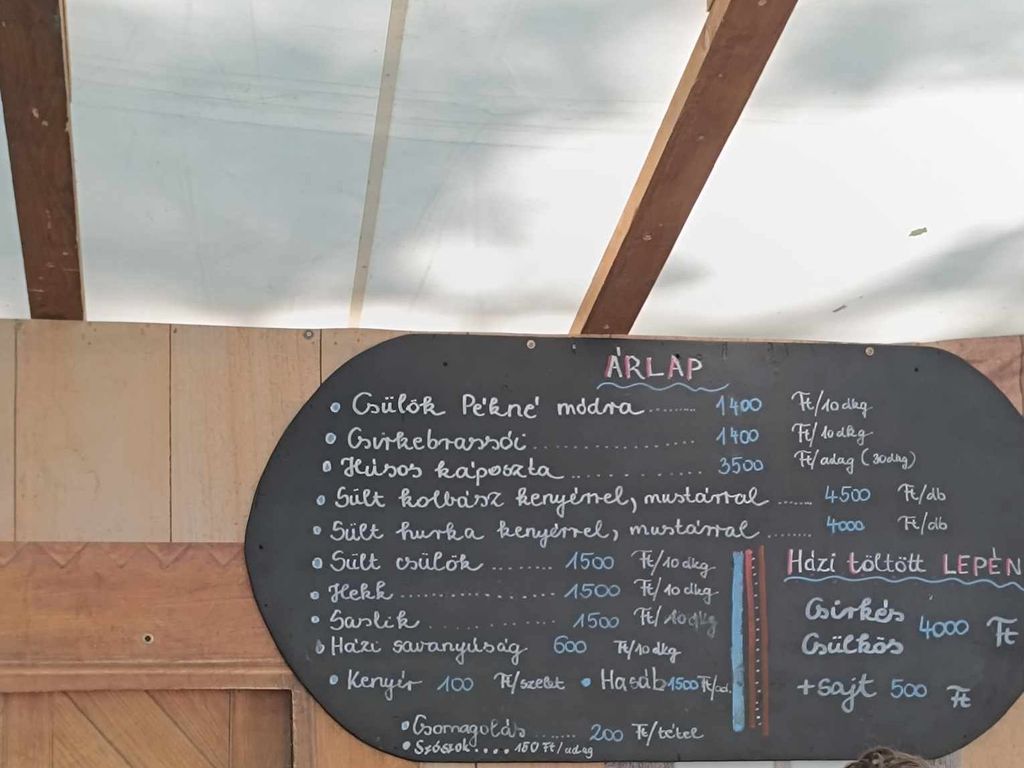 ÁRLAP
• Csülök Pékné módra ........ 1400 Ft/10 dkg
• Csirkebrassói ........ 1400 Ft/10 dkg
• Húsos káposzta ........ 3500 Ft/adag (30dkg)
• Sült kolbász kenyérrel, mustárral ....... 4500 Ft/db
• Sült hurka kenyérrel, mustárral ........ 4000 Ft/db
• Sült csülök ........ 1500 Ft/10 dkg
• Hekk ........ 1500 Ft/10 dkg
• Saslik ........ 1500 Ft/10 dkg
• Házi savanyúság 600 Ft/10 dkg
• Kenyér 100 Ft/szelet • Hasáb 1500 Ft/ad.
• Csomagolás ....... 200 Ft/tétel
• Szószok .... 150 Ft/adag
Házi töltött LEPÉN
Csirkés
Csülkös
4000 Ft
+ sajt 500 Ft